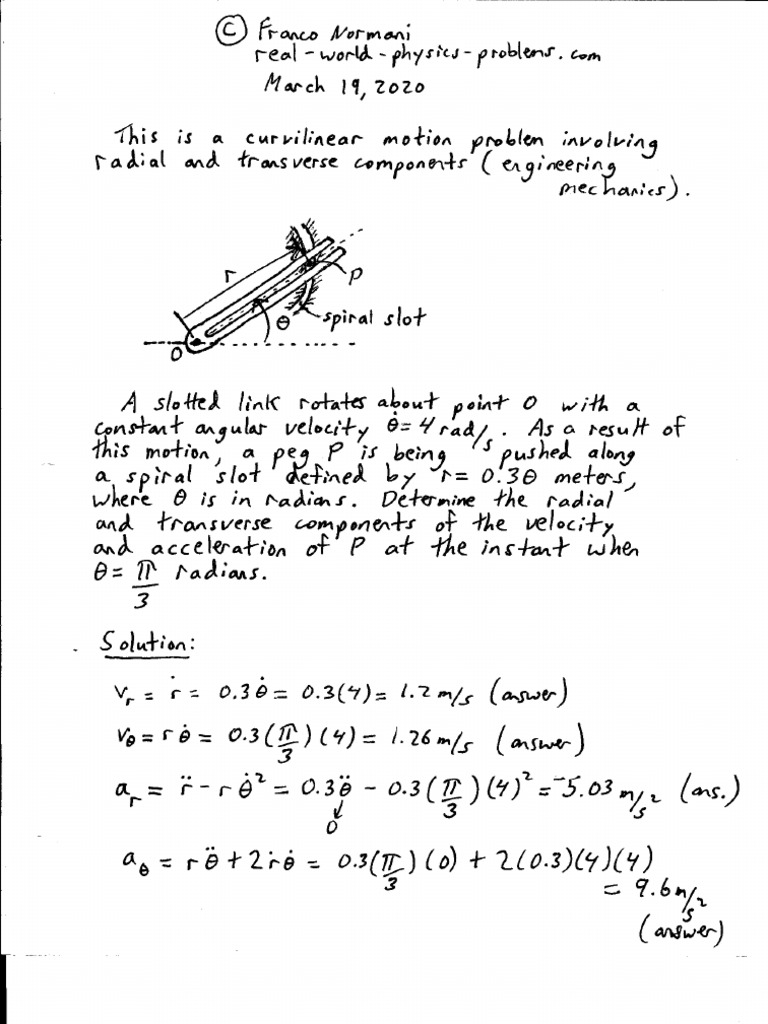 © Franco Normani
real-world-physics-problems.com
March 19, 2020
This is a curvilinear motion problem involving
radial and transverse components (engineering
mechanics).
r
P
θ
spiral slot
O
A slotted link rotates about point O with a
constant angular velocity θ̇ = 4 rad/s. As a result of
this motion, a peg P is being pushed along
a spiral slot defined by r = 0.3θ meters,
where θ is in radians. Determine the radial
and transverse components of the velocity
and acceleration of P at the instant when
θ = π/3 radians.
Solution:
v_r = ṙ = 0.3θ̇ = 0.3(4) = 1.2 m/s (answer)
v_θ = rθ̇ = 0.3(π/3)(4) = 1.26 m/s (answer)
a_r = r̈ - rθ̇² = 0.3θ̈ - 0.3(π/3)(4)² = -5.03 m/s² (ans.)
0
a_θ = rθ̈ + 2ṙθ̇ = 0.3(π/3)(0) + 2(0.3)(4)(4)
= 9.6 m/s²
(answer)